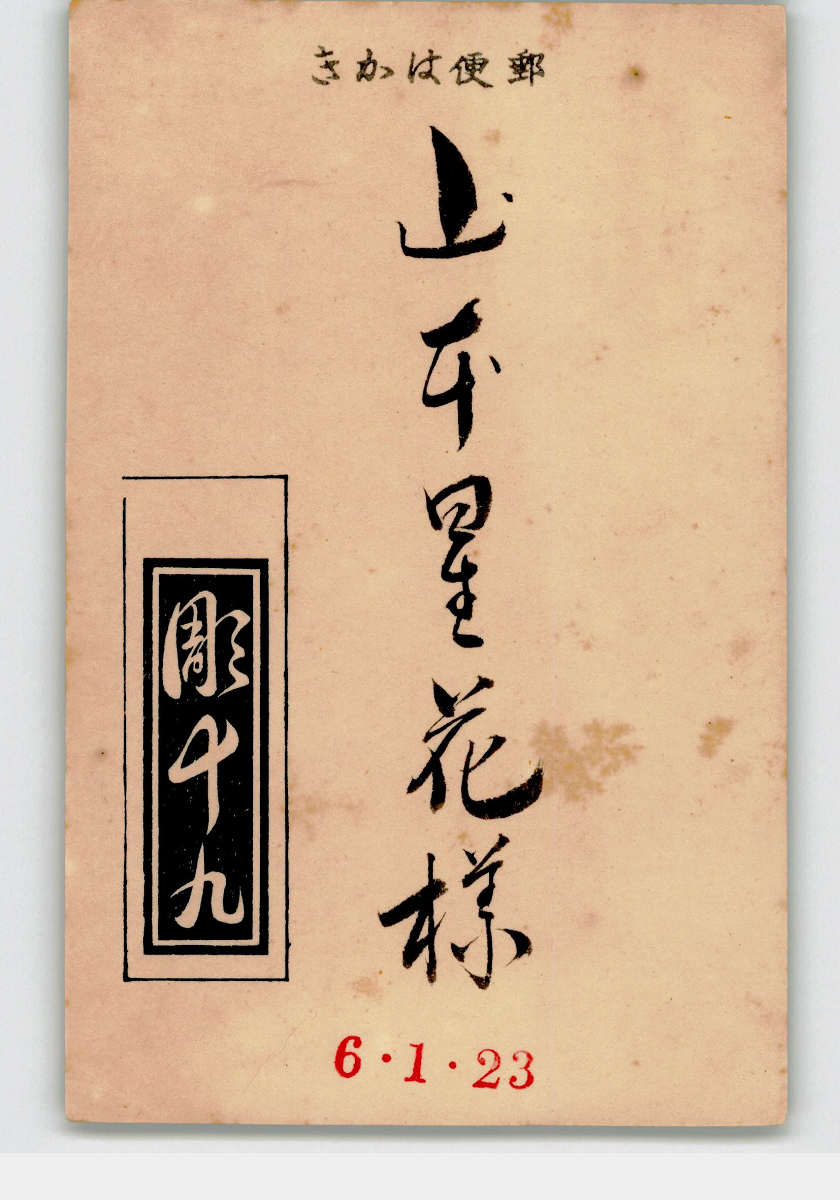 郵便はかき
山本星花様
彫十九
6・1・23